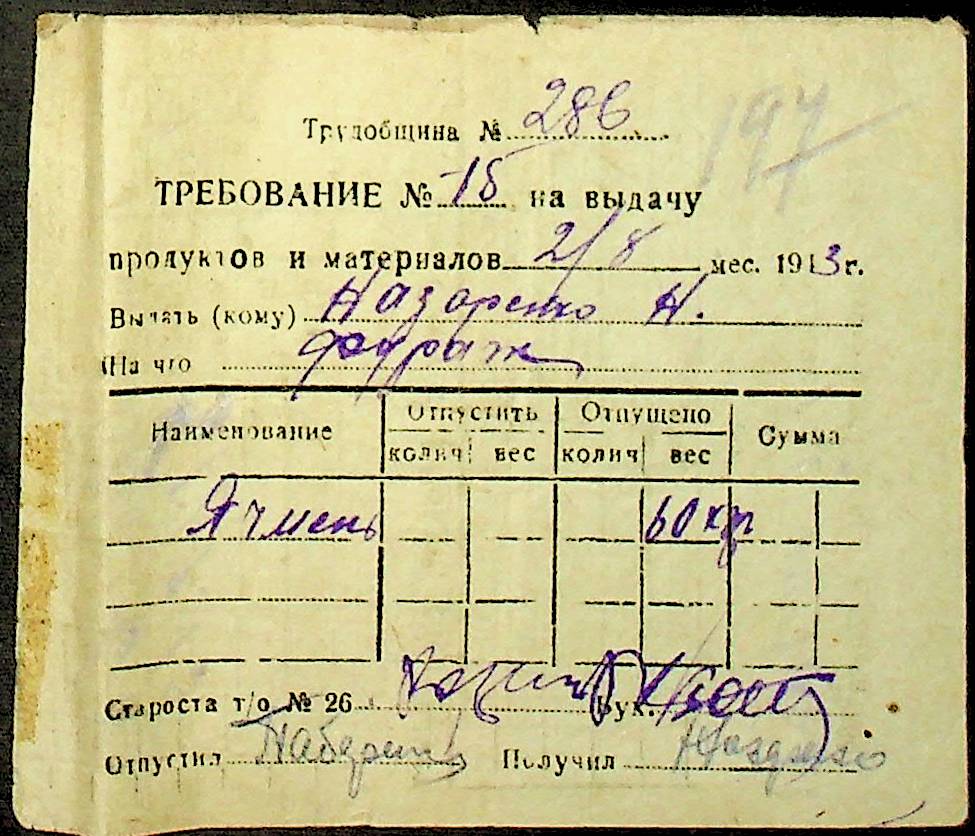 197
Трудобщина № 286
ТРЕБОВАНИЕ № 15 на выдачу
продуктов и материалов 2/8 мес. 1943 г.
Выдать (кому) Назаренко Н.
На что фураж
Наименование Отпустить Отпущено Сумма
колич вес колич вес
Ячмень 60 кгр
Староста т/о № 26 Бух.
Отпустил Получил Назаренко